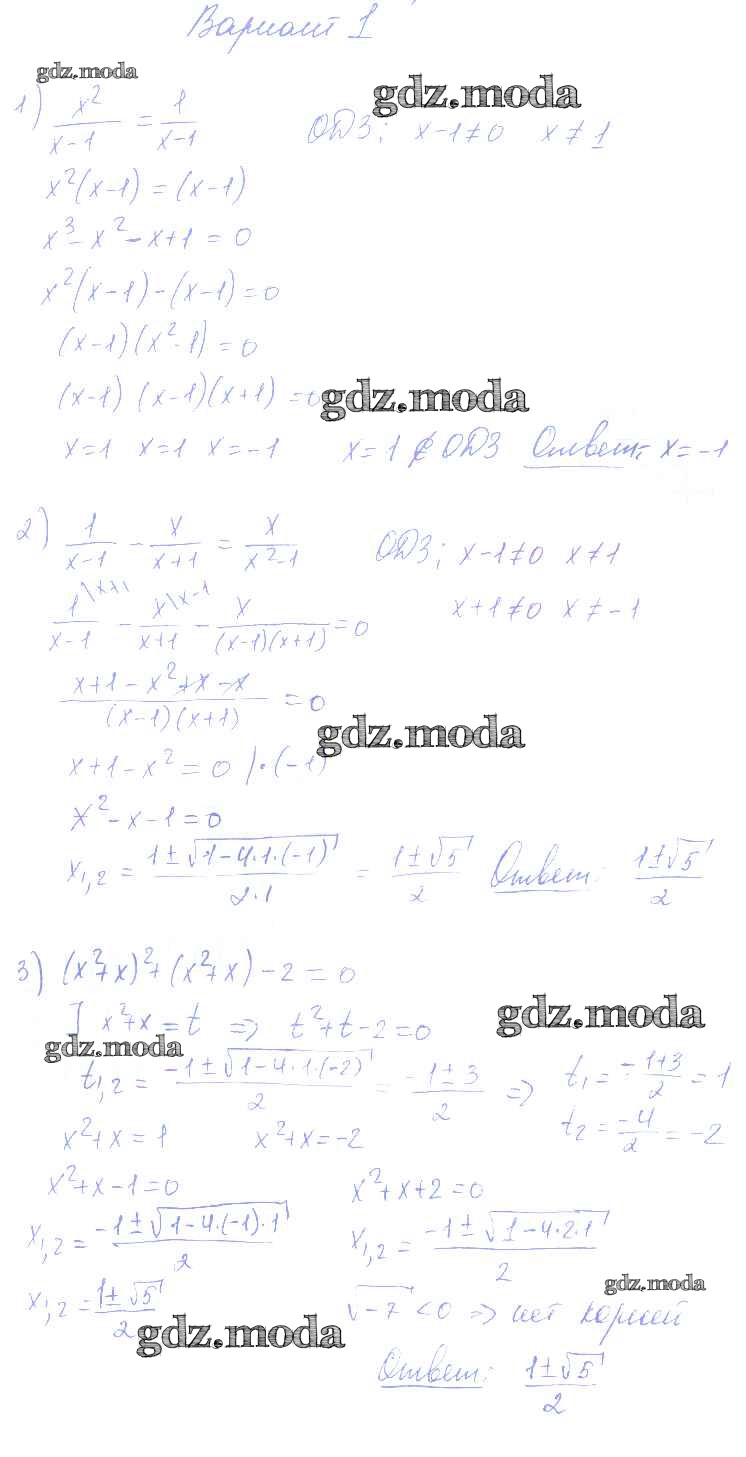 Вариант 1
gdz.moda
gdz.moda
1) x²/(x-1) = 1/(x-1) ОДЗ; x-1≠0 x≠1
x²(x-1) = (x-1)
x³-x²-x+1=0
x²(x-1)-(x-1)=0
(x-1)(x²-1)=0
(x-1) (x-1)(x+1) =0
gdz.moda
x=1 x=1 x=-1 x=1 ∉ ОДЗ Ответ: x=-1
2) 1/(x-1) - x/(x+1) = x/(x²-1) ОДЗ; x-1≠0 x≠1
1\x+1/(x-1) - x\x-1/(x+1) - x/((x-1)(x+1)) =0 x+1≠0 x≠-1
(x+1-x²+x-x)/((x-1)(x+1)) =0
gdz.moda
x+1-x²=0 |·(-1)
x²-x-1=0
x1,2 = (1±√(1-4·1·(-1)))/(2·1) = (1±√5)/2 Ответ: (1±√5)/2
3) (x²+x)²+(x²+x)-2=0
x²+x=t => t²+t-2=0
gdz.moda
gdz.moda
t1,2 = (-1±√(1-4·1·(-2)))/2 = (-1±3)/2 => t1 = (-1+3)/2 = 1
t2 = -4/2 = -2
x²+x=1 x²+x=-2
x²+x-1=0 x²+x+2=0
x1,2 = (-1±√(1-4·(-1)·1))/2 x1,2 = (-1±√(1-4·2·1))/2
x1,2 = (1±√5)/2 √-7 <0 => нет корней
gdz.moda
gdz.moda
Ответ: (1±√5)/2